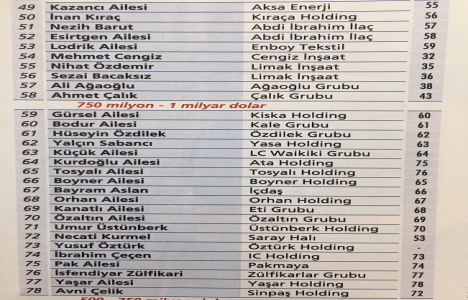 49 Kazancı Ailesi Aksa Enerji 55
50 İnan Kıraç Kıraça Holding 56
51 Nezih Barut Abdi İbrahim İlaç 57
52 Esirtgen Ailesi Abdi İbrahim İlaç 58
53 Lodrik Ailesi Enboy Tekstil 59
54 Mehmet Cengiz Cengiz İnşaat 32
55 Nihat Özdemir Limak İnşaat 35
56 Sezai Bacaksız Limak İnşaat 36
57 Ali Ağaoğlu Ağaoğlu Grubu 38
58 Ahmet Çalık Çalık Grubu 43
750 milyon - 1 milyar dolar
59 Gürsel Ailesi Kiska Holding 60
60 Bodur Ailesi Kale Grubu 61
61 Hüseyin Özdilek Özdilek Grubu 62
62 Yalçın Sabancı Yasa Holding 63
63 Küçük Ailesi LC Waikiki Grubu 64
64 Kurdoğlu Ailesi Ata Holding 75
65 Tosyalı Ailesi Tosyalı Holding 76
66 Boyner Ailesi Boyner Holding 65
67 Bayram Aslan İçdaş 66
68 Orhan Ailesi Orhan Holding 67
69 Kanatlı Ailesi Eti Grubu 68
70 Özaltın Ailesi Özaltın Grubu 69
71 Umur Üstünberk Üstünberk Holding 70
72 Necati Kurmel Saray Halı 53
73 Yusuf Öztürk Öztürk Holding -
74 İbrahim Çeçen IC Holding 73
75 Pak Ailesi Pakmaya 74
76 İsfendiyar Zülfikari Zülfikarlar Grubu 77
77 Yaşar Ailesi Yaşar Holding 78
78 Avni Çelik Sinpaş Holding 72